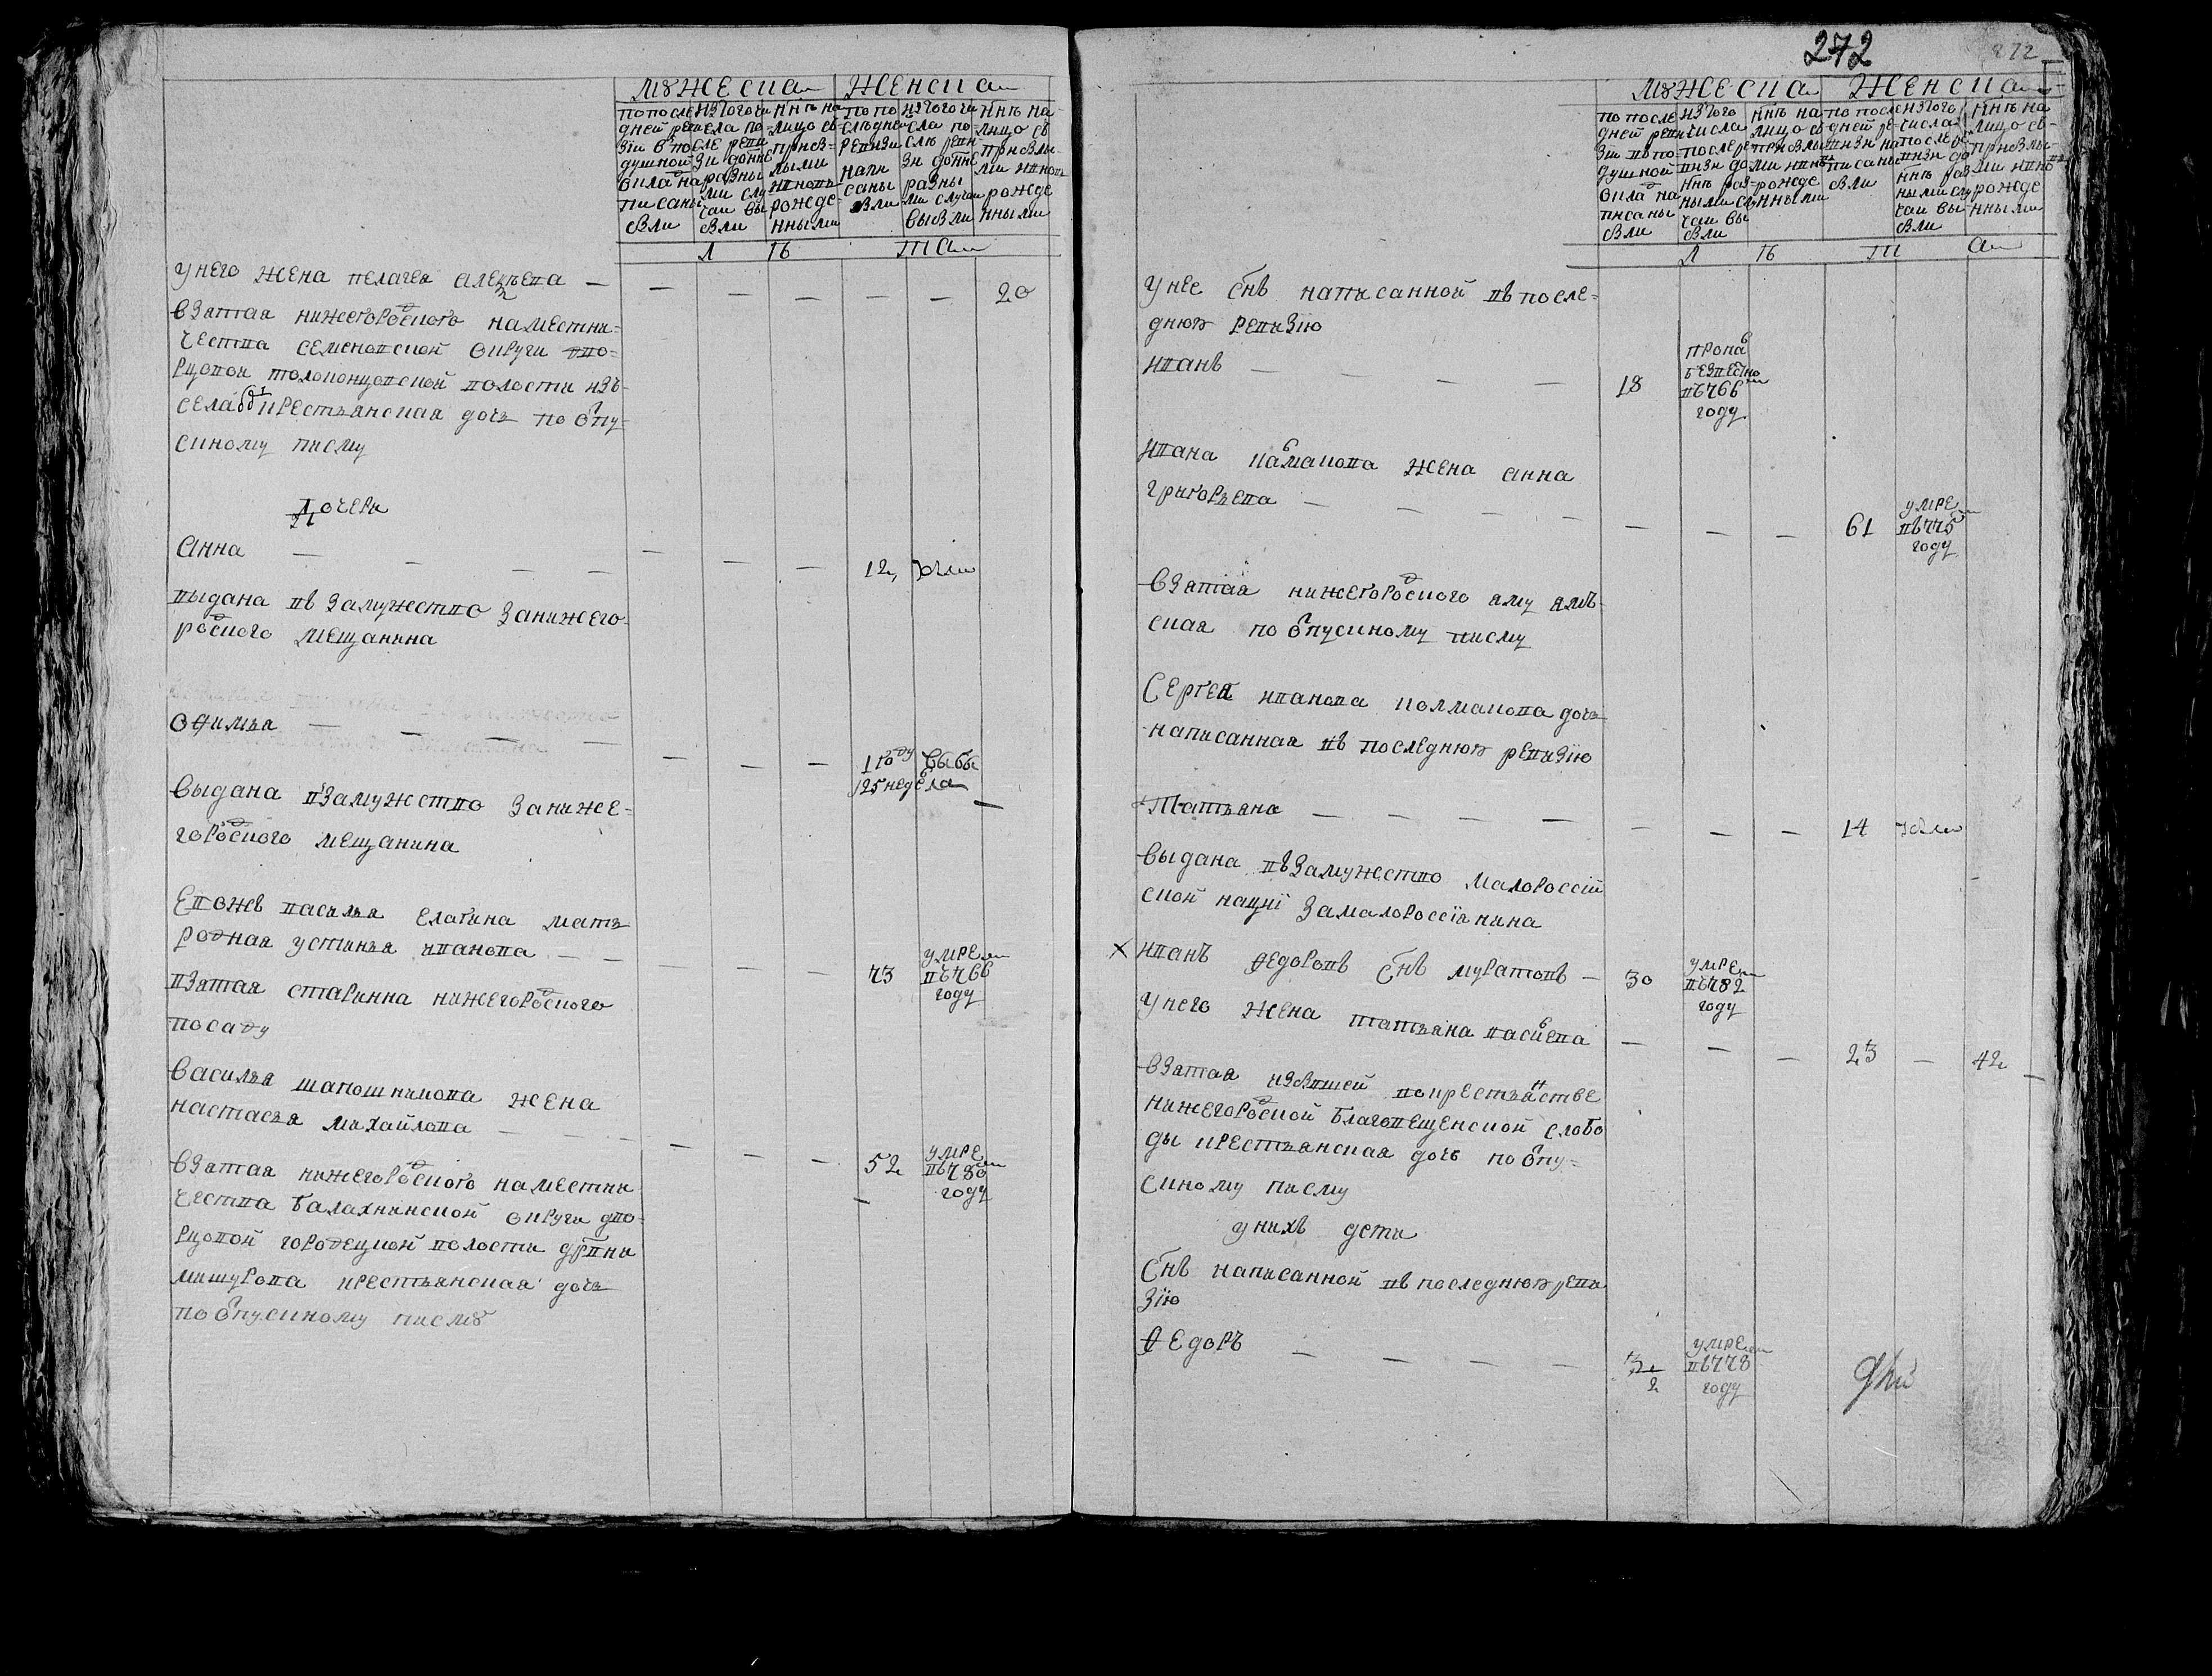 мужеска женска
по после
дней реви
зіи в по
душной
окла на
писаны
были
из того чи
сла по
сле реви
зи до нне
разны
ми слу
чаи вы
были
ннъ на
лицо съ
прибы
лыми
и вновь
рожде
нными
по по
слѣдней
ревизи
напи
саны
были
из того чи
сла по
слѣ реви
зи до нне
разны
ми случаи
выбыли
ннъ на
лицо съ
прибы
ми и вновь
рожде
нными
л ѣ т а
у него жена пелагея алеѯѣева — — — — — — 20
взятая нижегородского наместни=
чества семеновской округи дво=
рцовои толоконцовской волости изъ
села крестьянская дочь по отпу=
скному писму
дочери
Анна — — — — — — — 12,
выдана въ замужство за нижего
родского мещанина
Офимья — — — — — — — 1 году выбы
25 недѣ ла
выдана взамужство за ниже=
городского мещанина
Евожъ васильа елагина мать
родная устинья иванова — — — — — 73 умре
въ 766
году
взятая старинна нижегородского
посаду
Василья шапошникова жена
настасья михайлова — — — — — 52 умре
въ 780
году
взятая нижегородского наместни
чества балахнинской округи дво=
рцовой городецкой волости дрвни
мишурова крестьянская дочь
по отпускному писму
272
мужеска женска
по после
дней реви
зіи въ по
душной
окла на
писаны
были
из того
числа
после ре
визи до
ннъ раз
ными слу
чаи вы
были
ннъ на
лицо съ
прибылы
ми и вновь
рожде
нными
по после
дней ре
визи на
писаны
были
из того
числа
после ре
визи до
ннъ раз
ными слу
чаи вы
были
ннъ на
лицо съ
прибылы
ми и вновь
рожде
нными
л ѣ т а
у нее снъ написанной въ после=
днюю ревизію
иванъ — — — — 18 пропа
безвесно
въ 766
году
ивана калмакова жена анна
григорьева — — — — — — — — 61 умре
въ 775
году
взятая нижегородского яму ямъ
ская по отпускному писму
Сергея иванова колмакова дочь
написанная въ последнюю ревизію
Татьяна — — — — — — — 14
выдана въ замужство малороссій
ской націі за малороссіянина
х иванъ федоровъ снъ муратовъ — 30 умре
въ 782
году
у него жена татьяна васильева — — — 23 — 42
взятая из бывшей во крестьянстве
нижегородской благовещенской слобо
ды крестьянская дочь по отпу=
скному писму
у нихъ дети
снъ написанной въ последнюю реви
зію
федоръ — — — — 3/2 умре
въ 778
году